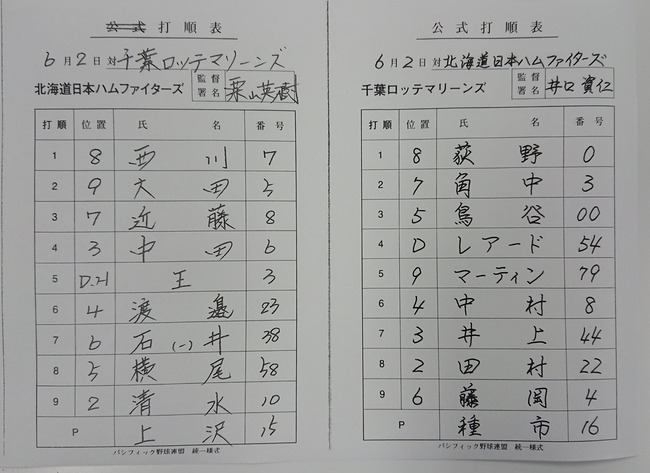 公式打順表
6月2日対千葉ロッテマリーンズ
北海道日本ハムファイターズ 監督署名 栗山英樹
打順 位置 氏 名 番号
1 8 西川 7
2 9 大田 5
3 7 近藤 8
4 3 中田 6
5 D.H 王 3
6 4 渡邉 23
7 6 石(一)井 38
8 5 横尾 58
9 2 清水 10
P 上沢 15
パシフィック野球連盟 統一様式
公式打順表
6月2日対北海道日本ハムファイターズ
千葉ロッテマリーンズ 監督署名 井口資仁
打順 位置 氏 名 番号
1 8 荻野 0
2 7 角中 3
3 5 鳥谷 00
4 D レアード 54
5 9 マーティン 79
6 4 中村 8
7 3 井上 44
8 2 田村 22
9 6 藤岡 4
P 種市 16
パシフィック野球連盟 統一様式